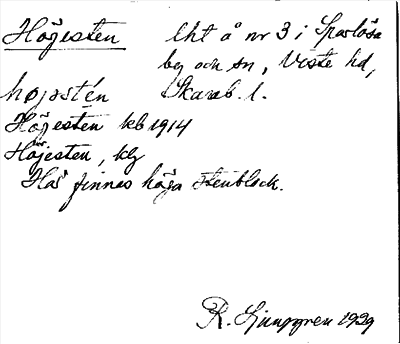 Höjesten lht å nr 3 i Sparlösa
by och sn, Viste hd,
højstén Skarab. l.
Höjesten kb 1914
Höjesten, klg
Här finnes höga stenblock.
R. Ljunggren 1929